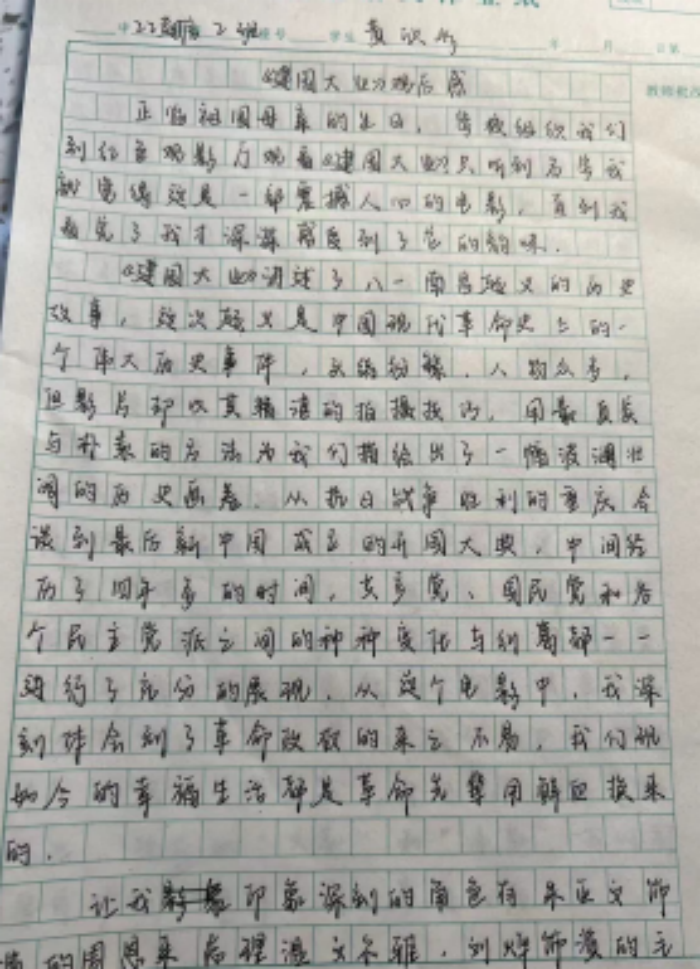 22 2班 座号 学生 黄 年 月 日第
教师批改
《建国大业》观后感
正临祖国母亲的生日，学校组织我们
到红色观影厅观看《建国大业》只听到名字我
就觉得这是一部震撼人心的电影，直到我
看完了我才深深感受到了它的韵味.
《建国大业》讲述了八一南昌起义的历史
故事，这次起义是中国现代革命史上的一
个伟大历史事件，头绪纷繁，人物众多，
但影片却以其精湛的拍摄技巧，用最真实
与朴素的方法为我们描绘出了一幅波澜壮
阔的历史画卷.从抗日战争胜利的重庆会
谈到最后新中国成立的开国大典，中间经
历了四年多的时间，共产党、国民党和各
个民主党派之间的种种变化与纠葛都一一
进行了充分的展现.从这个电影中，我深
刻体会到了革命政权的来之不易，我们现
如今的幸福生活都是革命先辈用鲜血换来
的.
让我印象深刻的角色有 文饰
演的周恩来总理温文尔雅，刘烨饰演的